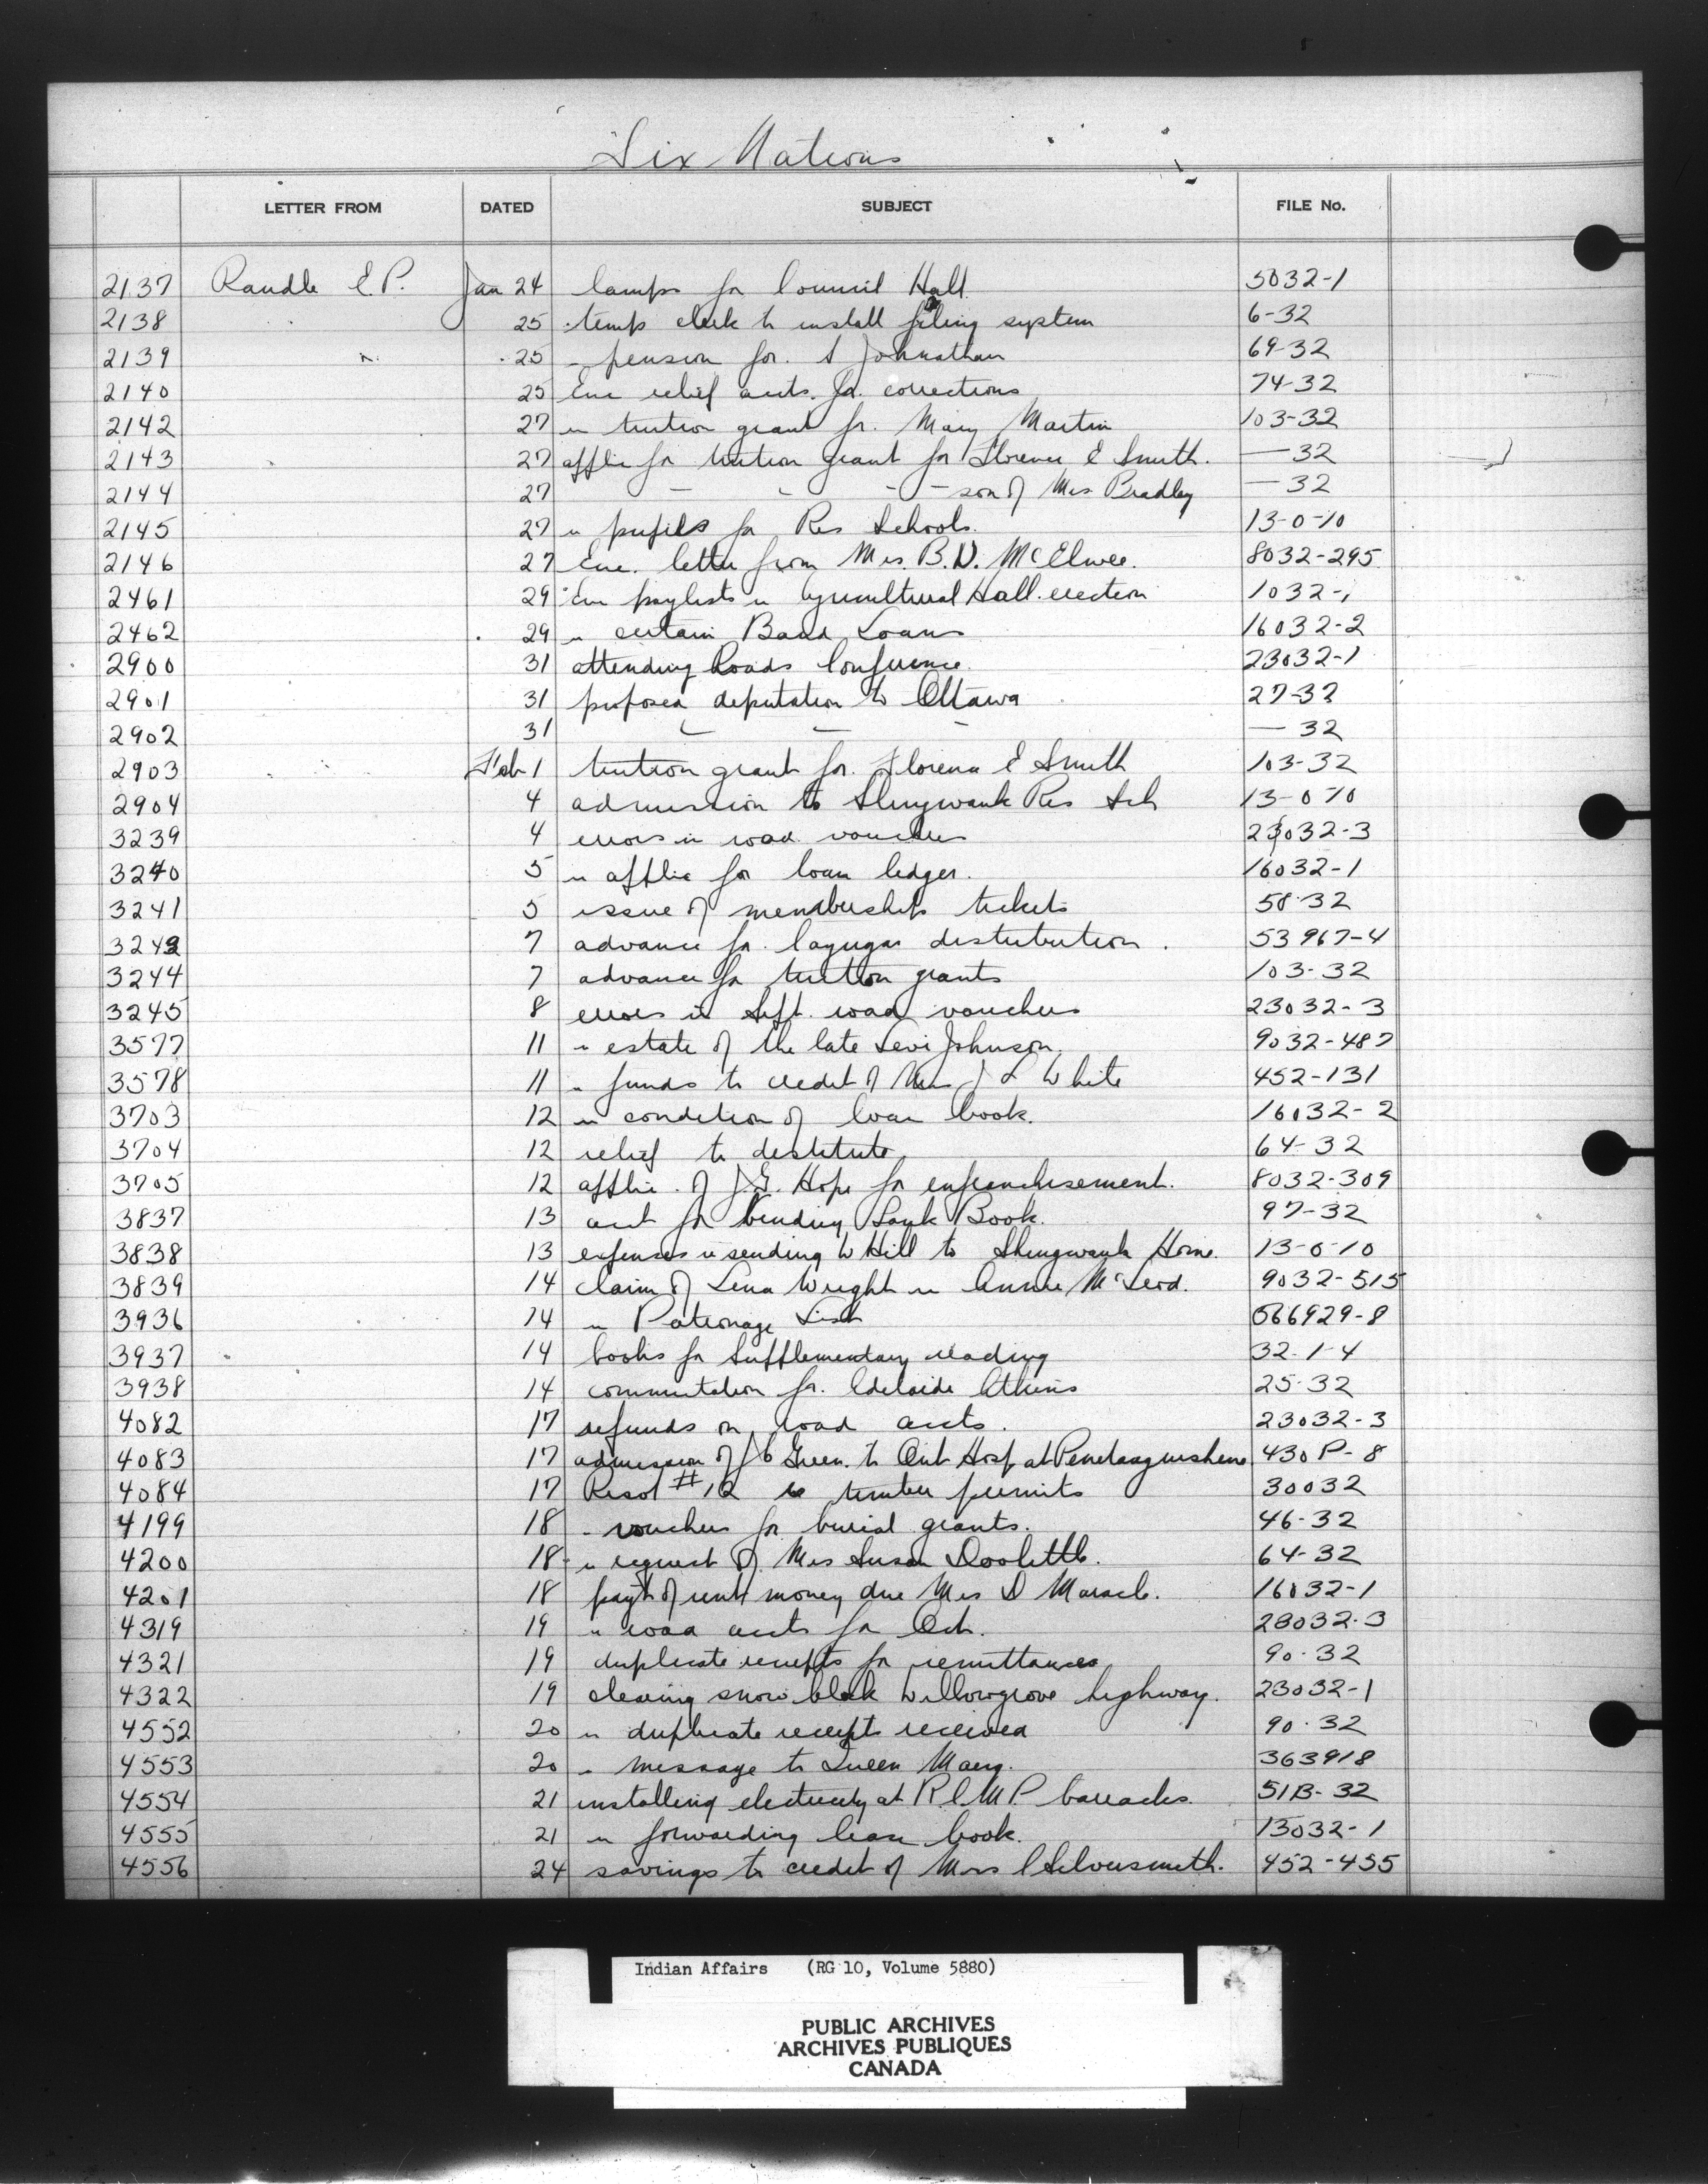 Six Nations
LETTER FROM DATED SUBJECT FILE No.
2137 Randle E.P. Jan 24 lamps for Council Hall 5032-1
2138 25 temp clerk to install filing system 6-32
2139 " 25 " pension for S Johnathan 69-32
2140 25 Enc relief accts. for corrections 74-32
2142 27 re tuition grant for Mary Martin 103-32
2143 27 applic for tuition grant for Florence E Smith. — 32
2144 27 - - - - son of Mrs. Bradley — 32
2145 27 re pupils for Res Schools. 13-0-10
2146 27 Enc. letter from Mrs. B.D. McElwee. 8032-295
2461 29 Enc paylists re Agricultural Hall erection 1032-1
2462 29 re certain Band Loans 16032-2
2900 31 attending Roads Conference 23032-1
2901 31 proposed deputation to Ottawa 27-32
2902 31 - - - — 32
2903 Feb 1 tuition grant for Florence E Smith 103-32
2904 4 admission to Shingwauk Res Sch 13-0-10
3239 4 errors in road vouchers 23032-3
3240 5 re applic for loan ledger. 16032-1
3241 5 issue of membership tickets 58-32
3242 7 advance for Cayuga distribution. 53967-4
3244 7 advance for tuition grants 103-32
3245 8 errors in Sept. road vouchers 23032-3
3577 11 re estate of the late Levi Johnson. 9032-487
3578 11 re funds to credit of Mrs J L White 452-131
3703 12 re condition of loan book. 16032-2
3704 12 relief to destitute 64-32
3705 12 applic. of J.G. Hope for enfranchisement. 8032-309
3837 13 acct for binding Bank Book. 97-32
3838 13 expenses re sending W Hill to Shingwauk Home. 13-0-10
3839 14 claim of Lena Wright re Annie McLeod. 9032-515
3936 14 re Patronage List 066929-8
3937 14 books for Supplementary reading 32-1-4
3938 14 commutation for Adelaide Atkins 25-32
4082 17 refunds on road accts. 23032-3
4083 17 admission of Green. to Ont Hosp at Penetanguishene 430P-8
4084 17 Resol #12 re timber permits 30032
4199 18 " vouchers for burial grants. 46-32
4200 18 re request of Mrs Susan Doolittle. 64-32
4201 18 payt of rent money due Mrs D Maracle. 16032-1
4319 19 " road accts for Oct. 23032-3
4321 19 duplicate receipts for remittances 90-32
4322 19 clearing snow block Willowgrove highway. 23032-1
4552 20 re duplicate receipts received 90-32
4553 20 " message to Queen Mary. 363918
4554 21 installing electricity at R.C.M.P barracks. 51B-32
4555 21 re forwarding lease book. 13032-1
4556 24 savings to credit of Mrs C Silversmith. 452-455
Indian Affairs (RG 10, Volume 5880)
PUBLIC ARCHIVES
ARCHIVES PUBLIQUES
CANADA